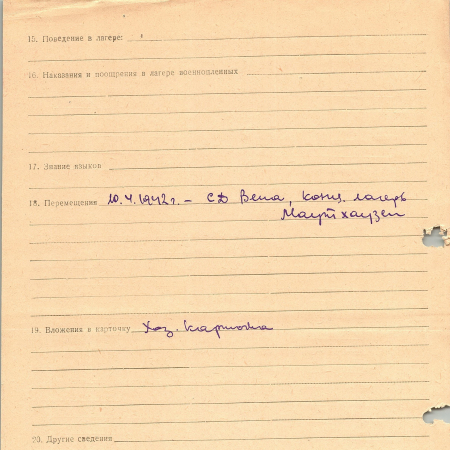 15. Поведение в лагере:
16. Наказания и поощрения в лагере военнопленных
17. Знание языков
18. Перемещения 10.4.1942 г. – СД Вена, Конц. лагерь
Маутхаузен
19. Вложения в карточку Хоз. карточка
20. Другие сведения